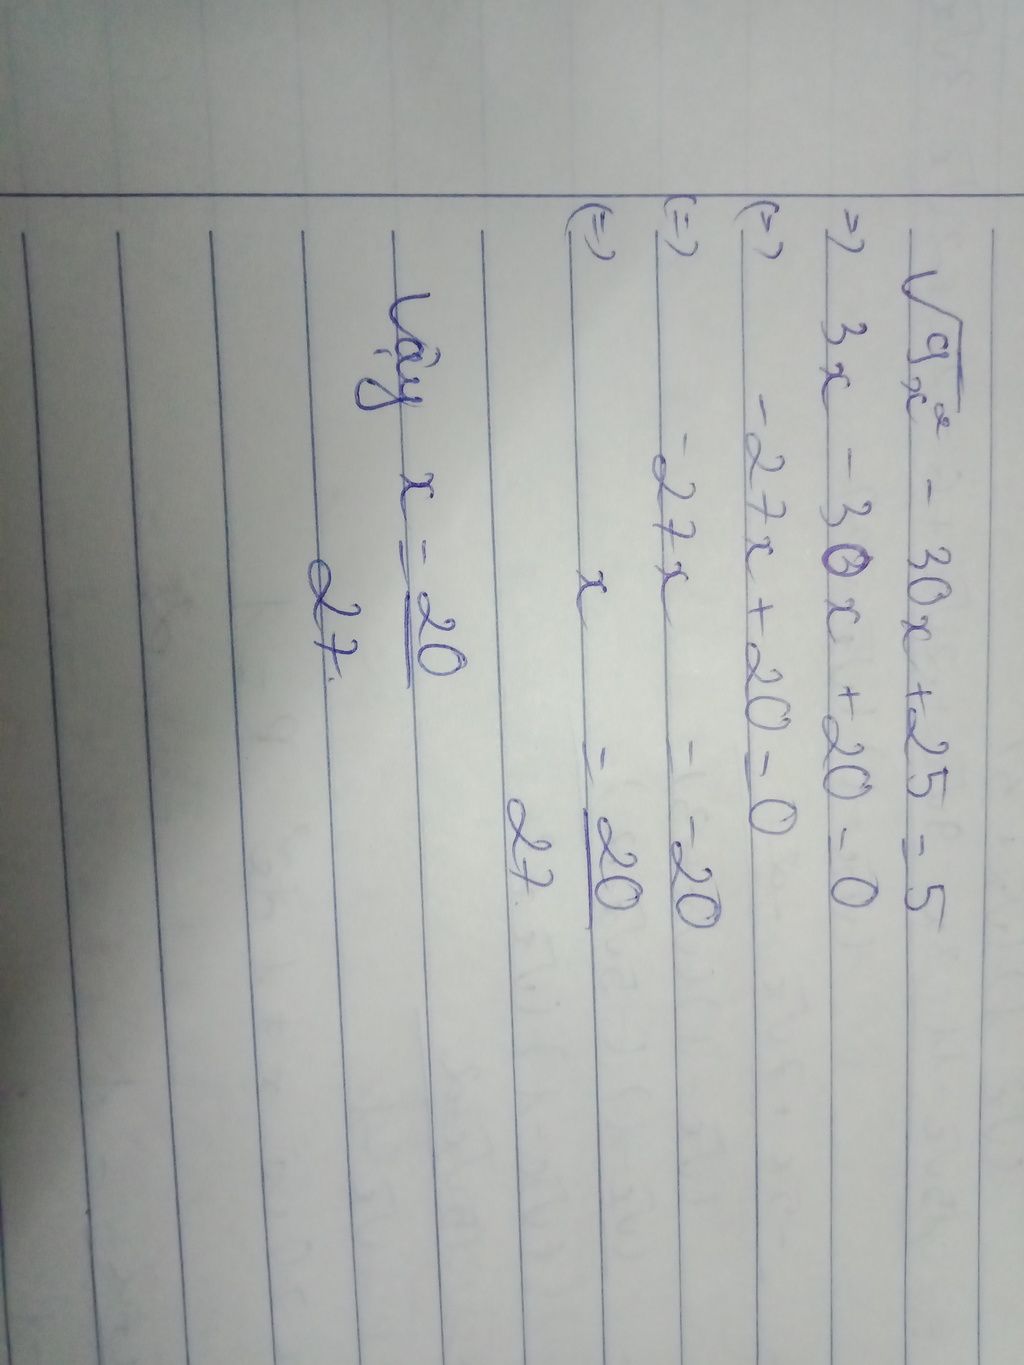 √9x² - 30x + 25 = 5
=> 3x - 30x + 20 = 0
(=) -27x + 20 = 0
(=) -27x = -20
(=) x = 20/27
Vậy x = 20/27.